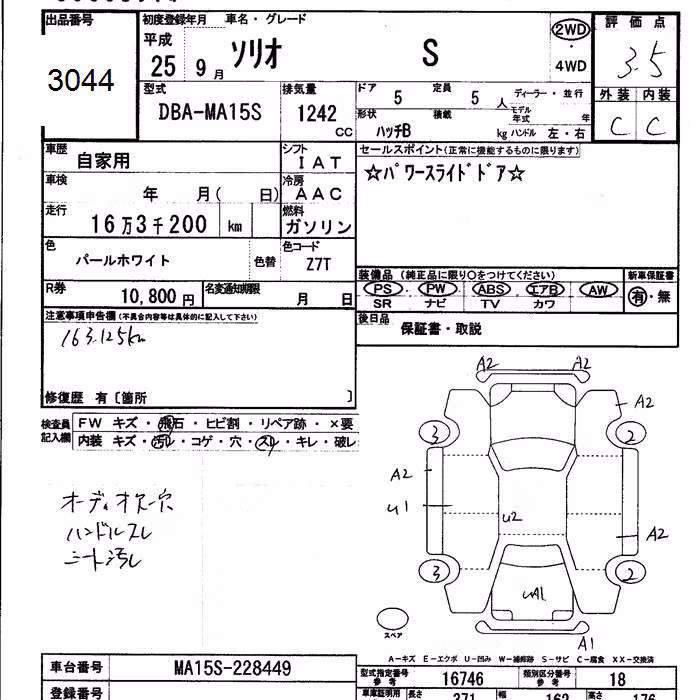 出品番号 初度登録年月 車名・グレード 評価点
3044
平成 25 9月 ソリオ S 2WD・4WD 3.5
型式 排気量 ドア 5 定員 5人 ディーラー・並行 外装 内装
DBA-MA15S 1242 CC 形状 ハッチB 積載 kg モデル年式 年 ハンドル 左・右 C C
車歴 自家用 シフト IAT セールスポイント(正常に機能するものに限ります)
車検 年 月( 日) 冷房 AAC ☆パワースライドドア☆
走行 16万3千200 km 燃料 ガソリン
色 パールホワイト 色替 色コード Z7T
装備品 (純正品に限り○をつけてください) 新車保証書
R券 10,800円 名変通知期限 月 日 PS・PW・ABS・エアB・AW 有・無
SR ナビ TV カワ
注意事項申告欄(不具合内容等は具体的に記入して下さい) 後日品 保証書・取説
163,125km
修復歴 有〔箇所 〕
検査員記入欄 FW キズ・飛石・ヒビ割・リペア跡・×要
内装 キズ・汚レ・コゲ・穴・スレ・キレ・破レ
A2 A2
A2
3 2
A2
U1
U2
A2
3 2
UA1
A1
オーディオスー穴
ハンドルスレ
シート汚レ
スペア
A-キズ E-エクボ U-凹み W-補修跡 S-サビ C-腐食 XX-交換済
車台番号 MA15S-228449 型式指定番号 参考 16746 類別区分番号 参考 18
登録番号 車庫証明用 長さ 371 幅 162 高さ 176